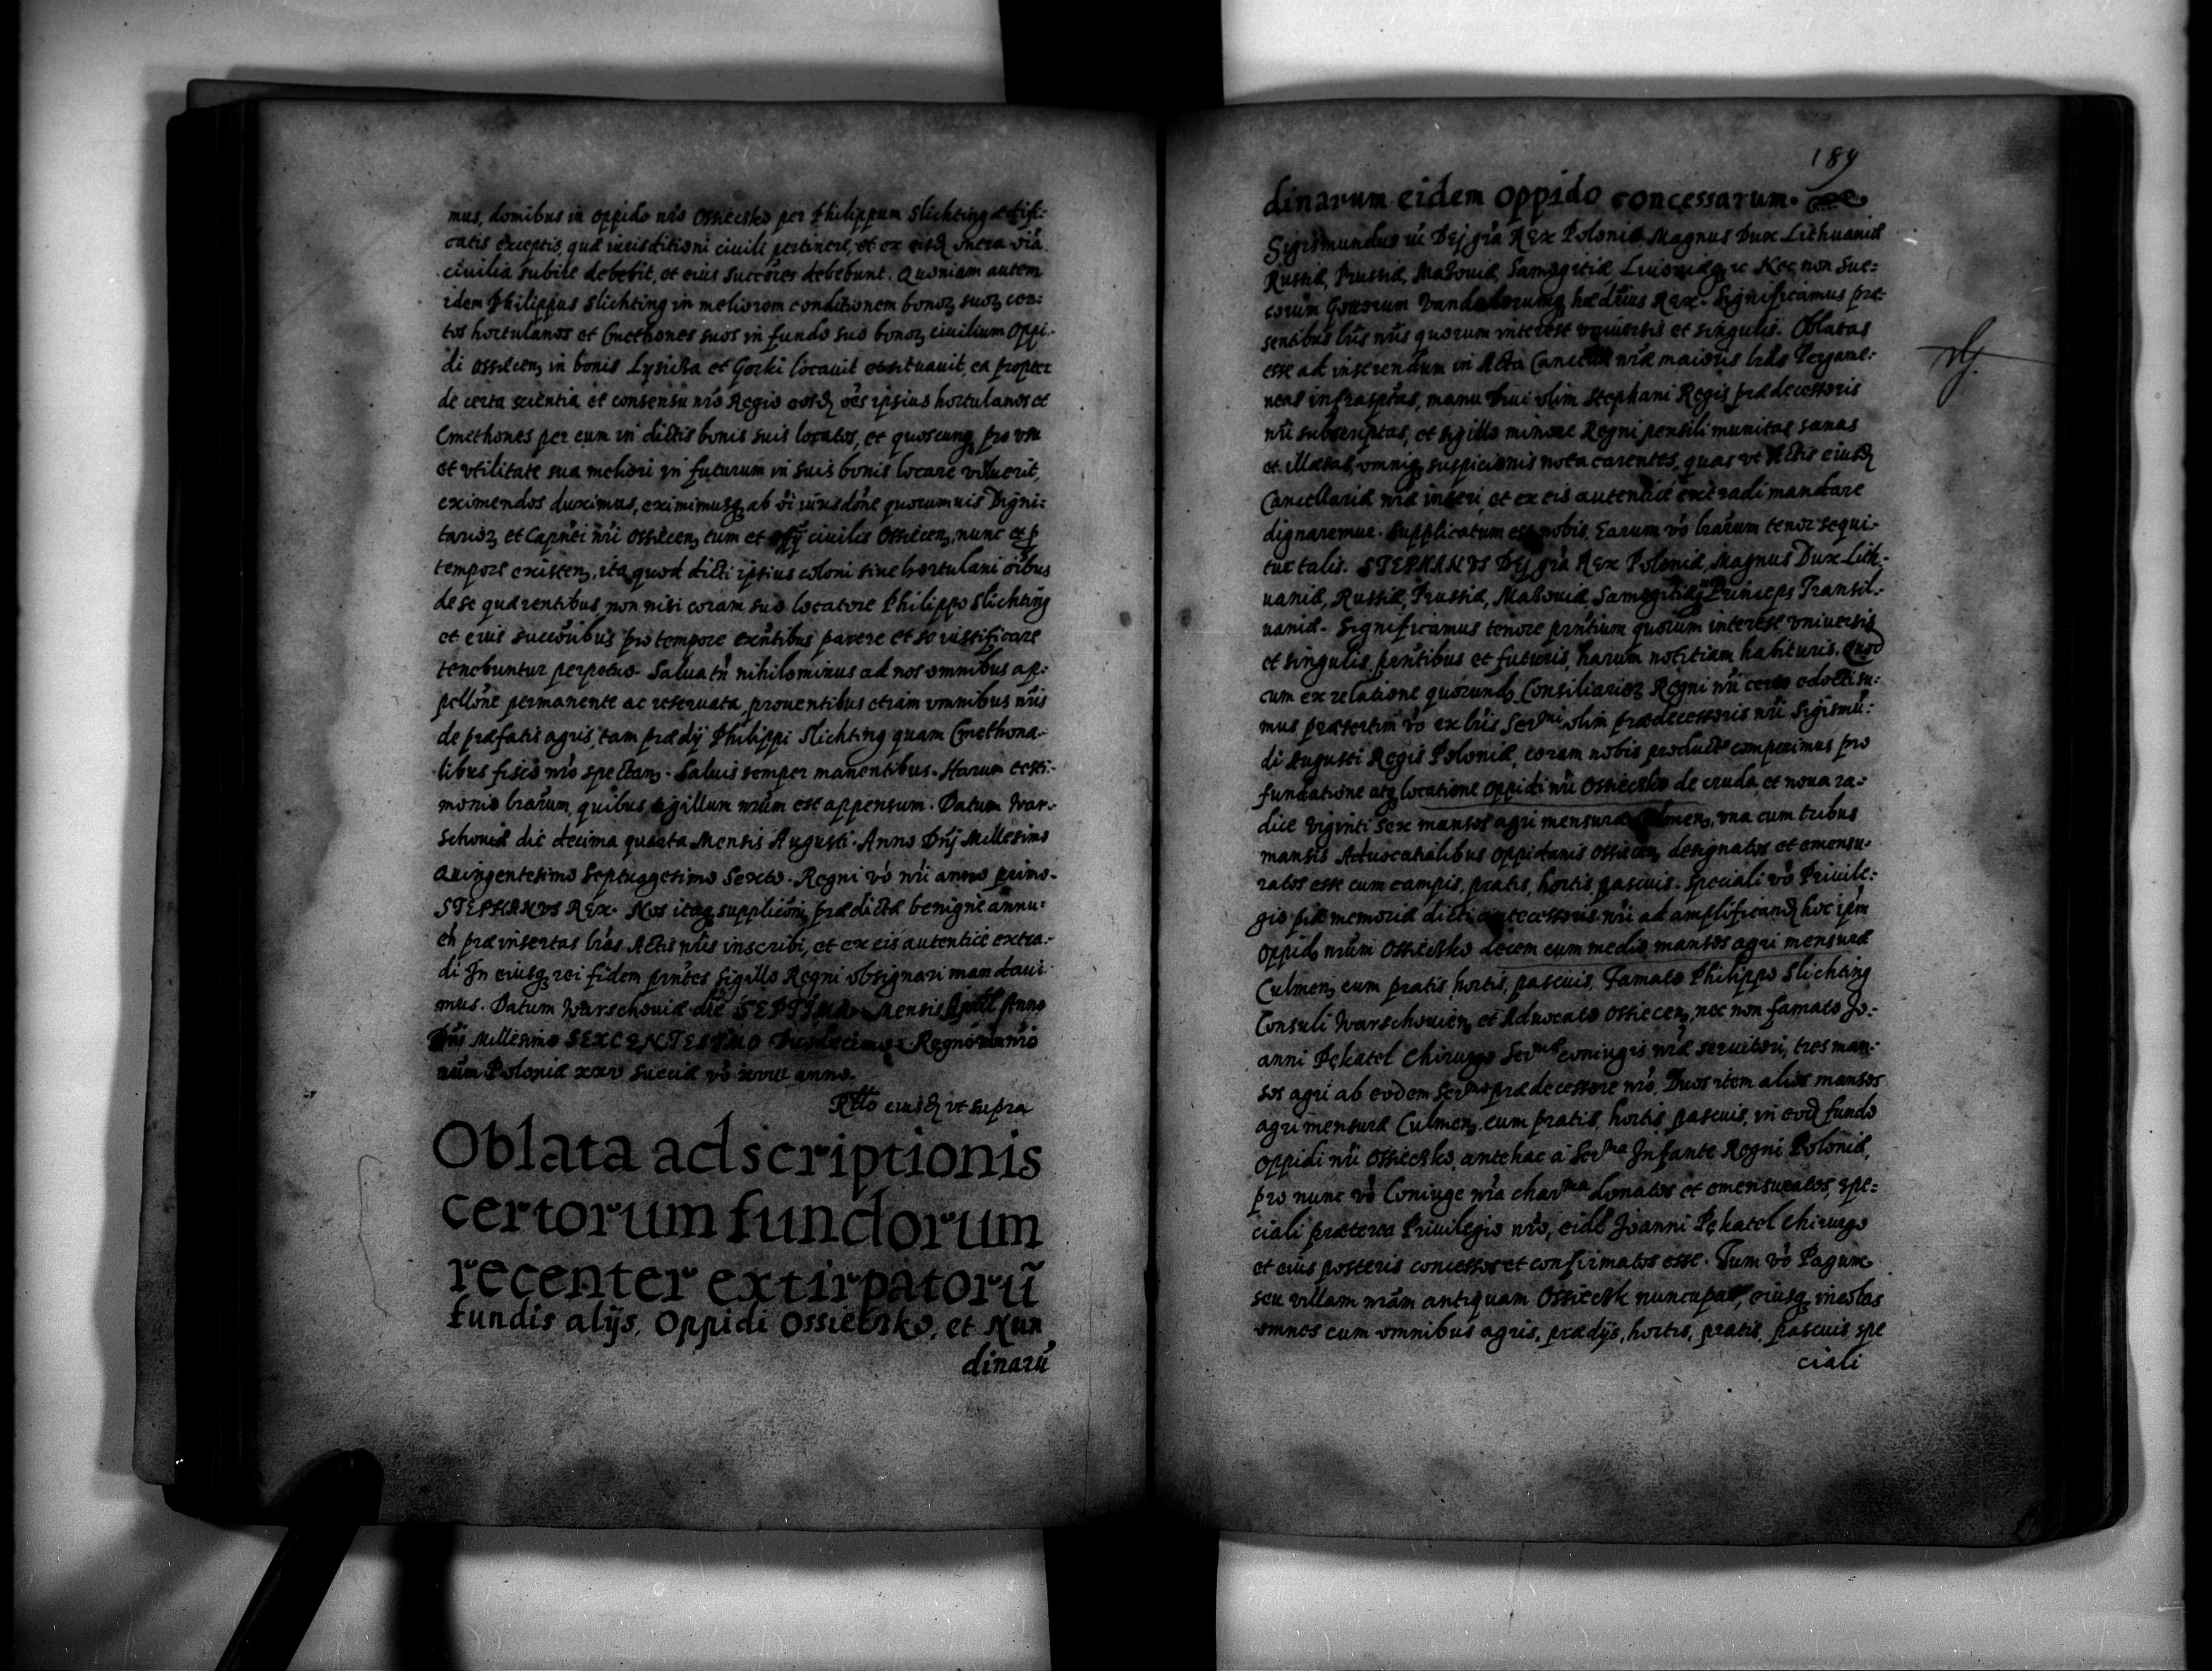 mus, domibus in oppido nr̃o Ossiecsko per Philippum Slichting ædifi:
catis exceptis, quæ iurisditioni ciuili pertinere, et ex eisd onera
ciuilia subire debebit, et eius succōres debebunt. Quoniam autem
idem Philippus Slichting in meliorem conditionem bonoꝝ suoꝝ cer:
tos hortulanos et Cmethones suos in fundo suo bonoꝝ ciuilium Oppi:
di Ossiecen, in bonis et Gorki locauit, ea propter
de certa scientia et consensu nr̃o Regio eosd oēs ipsius hortulanos et
Cmethones per eum in dictis bonis suis locatos, et quoscunq pro vsu
et vtilitate sua meliori in futurum in suis bonis locare voluerit,
eximendos duximus, eximimusq ab oī iurisdōne quorumuis Digni:
tarioꝝ et Capnēi nr̃i Ossiecen, tum et ciuilis Ossiecen, nunc et p
tempore existen, ita quod dicti ipsius coloni siue hortulani oībus
de se quærentibus, non nisi coram suo locatore Philippo Slichting
et eius succōribus pro tempore exñtibus parere et se iustificare
tenebuntur perpetuo. Salua tñ nihilominus ad nos omnibus ap:
pellōne permanente ac reseruata, prouentibus etiam omnibus nr̃is
de præfatis agris, tam prædij Philippi Slichting quam Cmethona:
libus fisco nr̃o spectan. Saluis semper manentibus. Harum testi:
monio lrārum, quibus sigillum nrūm est appensum. Datum War:
schouiæ die decima quarta Mensis Augusti. Anno Dnĩ Millesimo
Quingentesimo Septuagesimo Sexto. Regni vō nr̃i anno primo.
STEPHANVS REX. Nos itaq supplicōni prædictæ benigne annu:
eñ præinsertas lrās Actis nr̃is inscribi, et ex eis autentice extra:
di In eiusq rei fidem prñtes Sigillo Regni obsignari mandaui:
mus. Datum Warschouiæ die SEPTIMA Mensis Aprīl Anno
Dnĩ Millesimo SEXCENTESIMO Duodecimo. Regnōrum nr̃o
rūm Poloniæ xxv Sueciæ vō xviii anno.
Rtto eiusd vt supra
Oblata adscriptionis
certorum fundorum
recenter extirpatorũ
fundis alijs, Oppidi Ossiecsko, et Nun
dinarũ
189
dinarum eidem oppido concessarum.
Sigismundus iii Dej grā Rex Poloniæ Magnus Dux Lithuaniæ
Russiæ, Prussiæ, Masouiæ, Samogitiæ Liuoniæq ꝛc Nec non Sue:
corum Gottorum Vandalorumq hæd̃rius Rex. Significamus præ:
sentibus lrīs nr̃is quorum interest vniuersis et singulis. Oblatas
esse ad inserendum in Acta Cancellæ nr̃æ maioris lrās Pergame:
neas infrasptas, manu Diui olim Stephani Regis prædecessoris
nr̃i subscriptas, et sigillo minore Regni pensili munitas sanas
et illæsas, omniq suspicionis nota carentes, quas vt Actis eiusd
Cancellariæ nr̃æ inseri, et ex eis autenticē extradi mandare
dignaremur. Supplicatum est nobis, Earum vō lrārum tenor sequi:
tur talis. STEPHANVS Dej grā Rex Poloniæ, Magnus Dux Lith:
uaniæ, Russiæ, Prussiæ, Masouiæ Samogitiæq Princeps Transil:
uaniæ. Significamus tenore prñtium quorum interest vniuersis
et singulis, prñtibus et futuris, harum notitiam habituris. Quod
cum ex relatione quorund Consiliarioꝝ Regni nr̃i certo edocti su:
mus præsertim vō ex lrīs Serᵐⁱ olim prædecessoris nr̃i Sigismũ:
di Augusti Regis Poloniæ, coram nobis productis comperimus pro
fundatione atq locatione oppidi nr̃i Ossiecsko de cruda et noua ra:
dice viginti sex mansos agri mensuræ Culmen, vna cum tribus
mansis Aduocatialibus oppidanis Ossiecen designatos et emensu:
ratos esse cum campis, pratis, hortis, pascuis. Speciali vō Priuile:
gio piæ memoriæ dicti antecessoris nr̃i ad amplificand hoc ipm
oppid nrūm Ossiecsko decem cum medio mansos agri mensuræ
Culmen, cum pratis, hortis, pascuis, Famato Philippo Slichting
Consuli Warschouien, et Aduocato Ossiecen, nec non famato Jo:
anni Pękatel Chirurgo Serᵐᵃᵉ coniugis nr̃æ seruitori, tres man:
sos agri ab eodem Serᵐᵒ prædecessore nr̃o. Duos item alios mansos
agri mensuræ Culmen, cum pratis, hortis, pascuis, in eod fundo
oppidi nr̃i Ossiecsko, antehac a Serᵐᵃ Infante Regni Poloniæ,
pro nunc vō Coniuge nr̃a charᵐᵃ donatos et emensuratos, spe:
ciali præterea Priuilegio nr̃o, eid Joanni Pękatel Chirurgo
et eius posteris concessos et confirmatos esse. Tum vō Pagum
seu villam nrām antiquam Ossiecsk nuncupat, eiusq incolas
omnes cum omnibus agris, prædijs, hortis, pratis, pascuis, spe
ciali